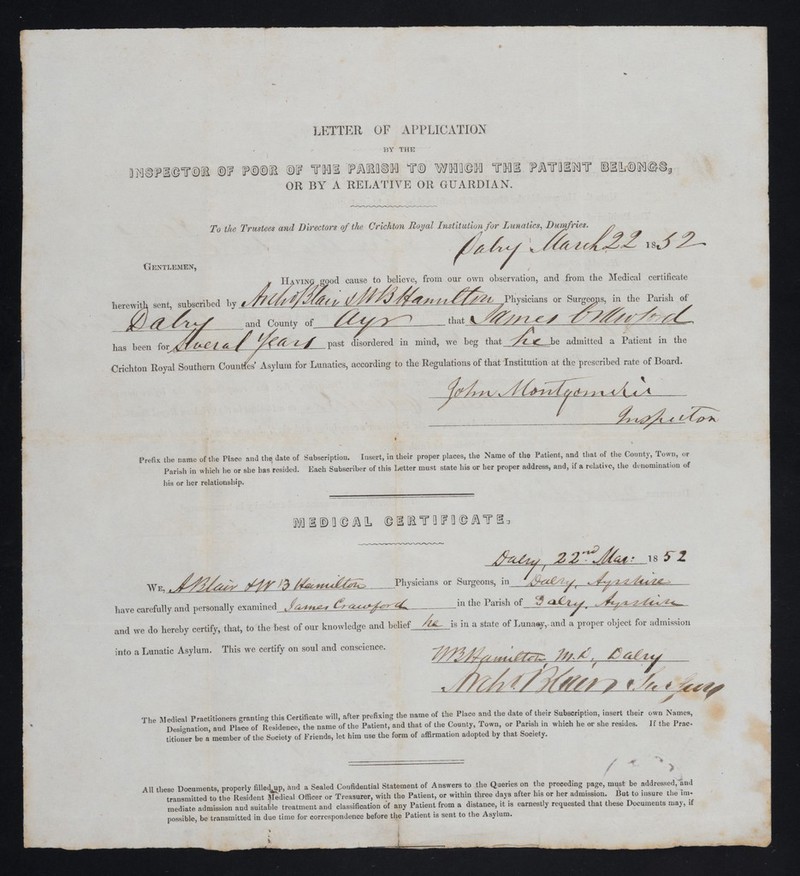 LETTER OF APPLICATION
BY THE
INSPECTOR OF POOR OF THE PARISH TO WHICH THE PATIENT BELONGS,
OR BY A RELATIVE OR GUARDIAN.
To the Trustees and Directors of the Crichton Royal Institution for Lunatics, Dumfries.
Dalry March 22 1852
GENTLEMEN,
HAVING good cause to believe, from our own observation, and from the Medical certificate
herewith sent, subscribed by Archd Blair & WB Hamilton Physicians or Surgeons, in the Parish of
Dalry and County of Ayr that James Crawford
has been for Several Years past disordered in mind, we beg that he be admitted a Patient in the
Crichton Royal Southern Counties' Asylum for Lunatics, according to the Regulations of that Institution at the prescribed rate of Board.
John Montgomerie
Inspector
Prefix the name of the Place and the date of Subscription. Insert, in their proper places, the Name of the Patient, and that of the County, Town, or
Parish in which he or she has resided. Each Subscriber of this Letter must state his or her proper address, and, if a relative, the denomination of
his or her relationship.
MEDICAL CERTIFICATE.
Dalry, 22nd Mar: 1852
WE, A Blair & W B Hamilton Physicians or Surgeons, in Dalry, Ayrshire
have carefully and personally examined James Crawford in the Parish of Dalry, Ayrshire
and we do hereby certify, that, to the best of our knowledge and belief he is in a state of Lunacy, and a proper object for admission
into a Lunatic Asylum. This we certify on soul and conscience.
WB Hamilton, M.D., Dalry
Archd Blair Surgeon
The Medical Practitioners granting this Certificate will, after prefixing the name of the Place and the date of their Subscription, insert their own Names,
Designation, and Place of Residence, the name of the Patient, and that of the County, Town, or Parish in which he or she resides. If the Prac-
titioner be a member of the Society of Friends, let him use the form of affirmation adopted by that Society.
All these Documents, properly filled up, and a Sealed Confidential Statement of Answers to the Queries on the preceding page, must be addressed, and
transmitted to the Resident Medical Officer or Treasurer, with the Patient, or within three days after his or her admission. But to insure the im-
mediate admission and suitable treatment and classification of any Patient from a distance, it is earnestly requested that these Documents may, if
possible, be transmitted in due time for correspondence before the Patient is sent to the Asylum.